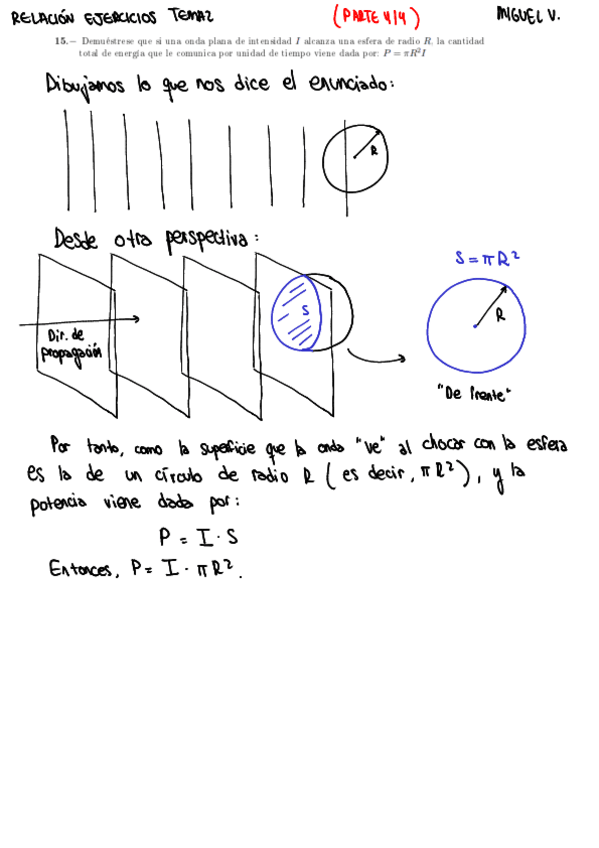 RELACIÓN EJERCICIOS TEMA2 (PARTE 4/4) MIGUEL V.
15.— Demuéstrese que si una onda plana de intensidad I alcanza una esfera de radio R, la cantidad
total de energía que le comunica por unidad de tiempo viene dada por: P = πR²I
Dibujamos lo que nos dice el enunciado:
R
Desde otra perspectiva:
Dir. de
propagación
S
S = πR²
R
"De frente"
Por tanto, como la superficie que la onda "ve" al chocar con la esfera
es la de un círculo de radio R (es decir, πR²), y la
potencia viene dada por:
P = I · S
Entonces, P = I · πR².